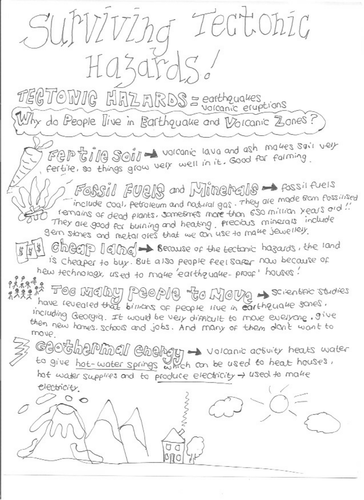 Surviving Tectonic
Hazards!
TECTONIC HAZARDS = earthquakes
volcanic eruptions
Why do People live in Earthquake and Volcanic Zones?
Fertile Soil → volcanic lava and ash makes soil very
fertile, so things grow very well in it. Good for farming.
Fossil Fuels and Minerals → fossil fuels
include coal, petroleum and natural gas. They are made from fossilised
remains of dead plants, sometimes more than 650 million years old!!
They are good for burning and heating. Precious minerals include
gem stones and metal ores that we can use to make jewellery.
Cheap land → Because of the tectonic hazards, the land
is cheaper to buy. But also people feel safer now because of
new technology, used to make 'earthquake-proof' houses!
Too Many People to Move → Scientific studies
have revealed that billions of people live in earthquake zones,
including Georgia. It would be very difficult to move everyone, give
them new homes, schools and jobs. And many of them don't want to
move.
Geothermal Energy → volcanic activity heats water
to give hot-water springs which can be used to heat houses,
hot water supplies and to produce electricity → used to make
electricity.